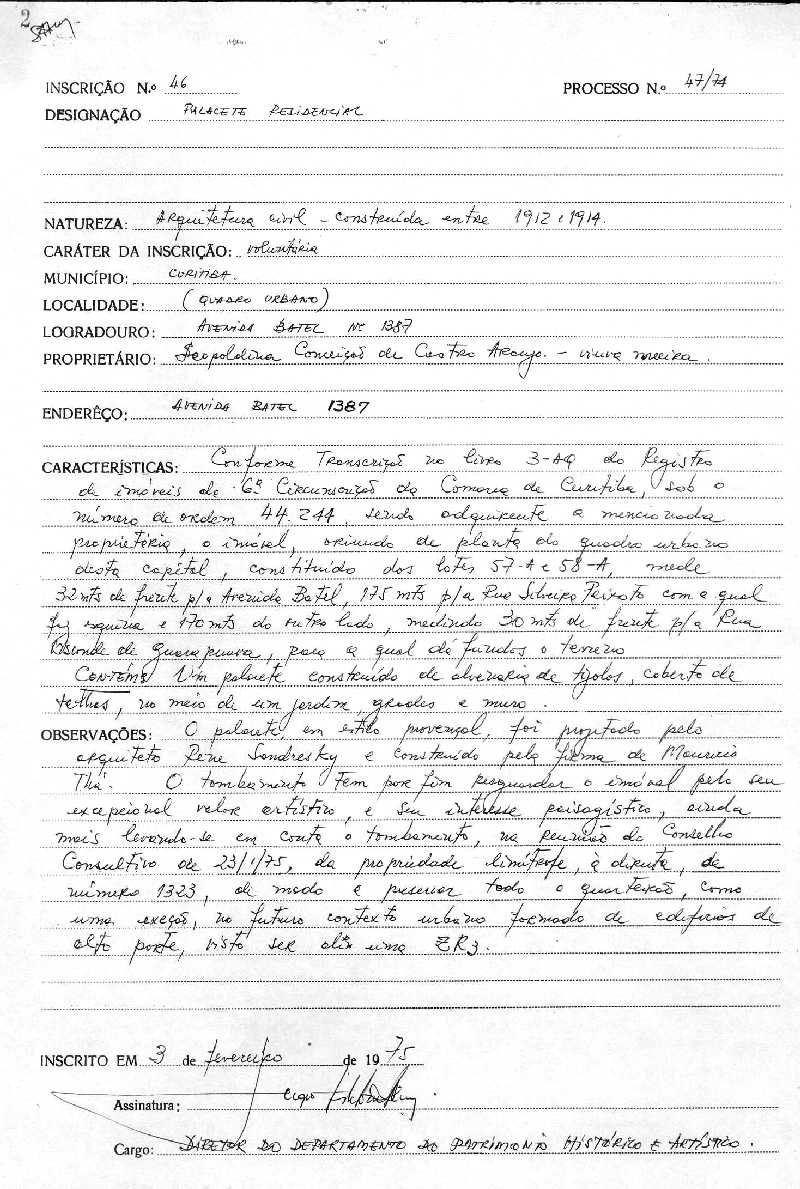 2
INSCRIÇÃO N.º 46 PROCESSO N.º 47/74
DESIGNAÇÃO PALACETE RESIDENCIAL
NATUREZA: Arquitetura civil - construída entre 1912 e 1914.
CARÁTER DA INSCRIÇÃO: voluntária
MUNICÍPIO: CURITIBA.
LOCALIDADE: (QUADRO URBANO)
LOGRADOURO: AVENIDA BATEL Nº 1387
PROPRIETÁRIO: Leopoldina Conceição de Castro Araujo. - viuva meeira.
ENDERÊÇO: AVENIDA BATEL 1387
CARACTERÍSTICAS: Conforme Transcrição no livro 3-AQ do Registro
de imóveis da 6ª Circunscrição da Comarca de Curitiba, sob o
número de ordem 44.244, sendo adquirente a mencionada
proprietária, o imóvel, oriundo de planta do quadro urbano
desta capital, constituído dos lotes 57-A e 58-A, mede
32 mts de frente p/a Avenida Batel, 175 mts p/a Rua Silveira Peixoto com a qual
faz esquina e 170 mts do outro lado, medindo 30 mts de frente p/a Rua
Visconde de Guarapuava, para a qual dá fundos o terreno
CONTÉM: Um palacete construído de alvenaria de tijolos, coberto de
telhas, no meio de um jardim, grades e muro.
OBSERVAÇÕES: O palacete, em estilo provençal, foi projetado pelo
arquiteto Rene Sandresky e construído pela firma de Mauricio
Thá. O tombamento tem por fim resguardar o imóvel pelo seu
excepcional valor artístico, e seu interesse paisagístico, ainda
mais levando-se em conta o tombamento, na reunião do Conselho
Consultivo de 23/1/75, da propriedade limítrofe, à direita, de
número 1323, de modo a preservar todo o quarteirão, como
uma exeção, no futuro contexto urbano formado de edifícios de
alto porte, visto ser ali uma ZR3.
INSCRITO EM 3 de fevereiro de 1975
Assinatura:
Cargo: DIRETOR DO DEPARTAMENTO DO PATRIMONIO HISTÓRICO E ARTÍSTICO.